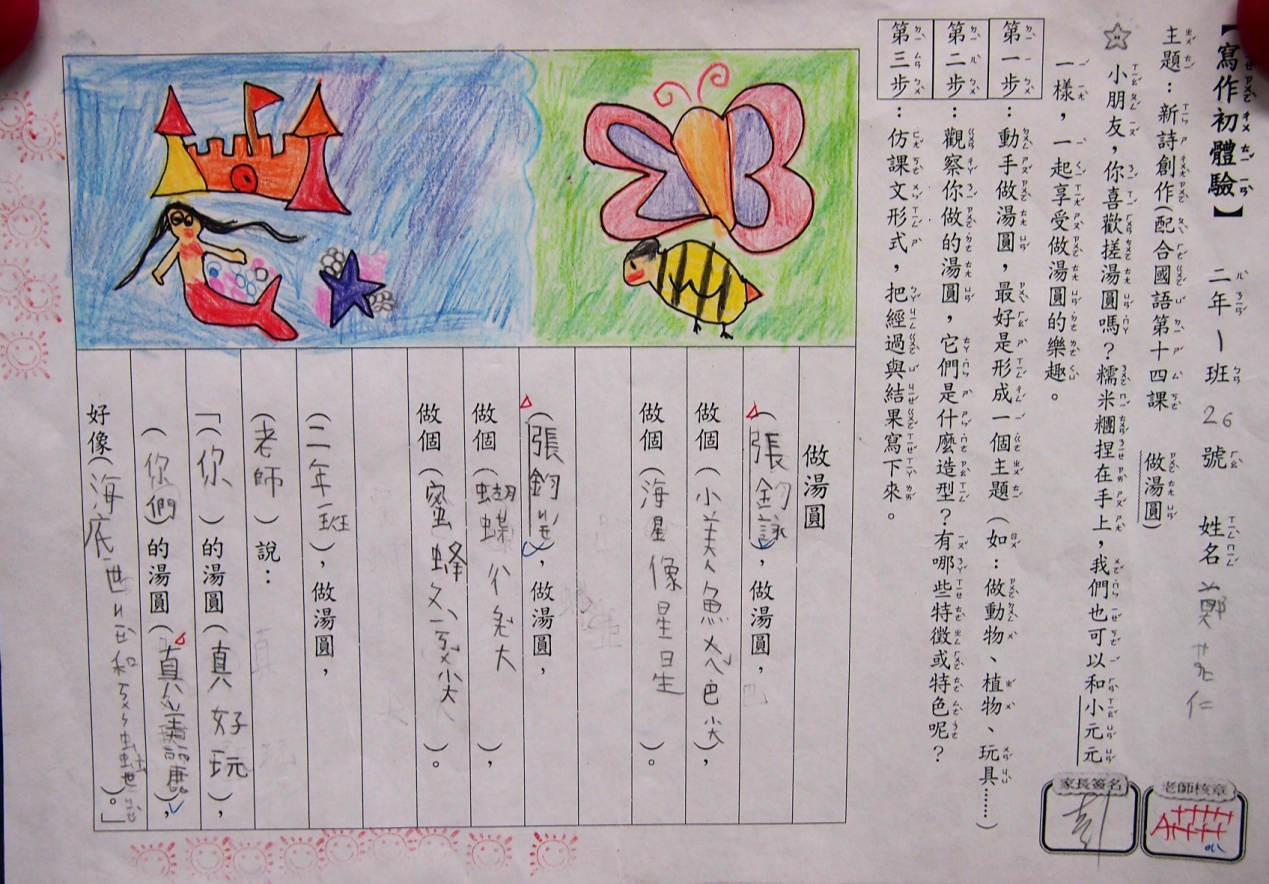 【寫作初體驗】 二年1班26號 姓名鄭 仁
主題：新詩創作(配合國語第十四課 做湯圓)
小朋友，你喜歡搓湯圓嗎？糯米糰捏在手上，我們也可以和小元元
一樣，一起享受做湯圓的樂趣。
第一步：動手做湯圓，最好是形成一個主題(如：做動物、植物、玩具……)
第二步：觀察你做的湯圓，它們是什麼造型？有哪些特徵或特色呢？
第三步：仿課文形式，把經過與結果寫下來。
老師核章
家長簽名
做湯圓
(張鈞詠)，做湯圓，
做個(小美人魚ㄨㄟˇ巴尖)，
做個(海星像星星)。
(張鈞)，做湯圓，
做個(蝴蝶 大)，
做個(蜜蜂 尖)。
(二年一班)，做湯圓，
(老師)說：
「(你)的湯圓(真好玩)，
(你們)的湯圓(真美麗)，
好像(海底世ㄐㄧㄝˋ和 )。」